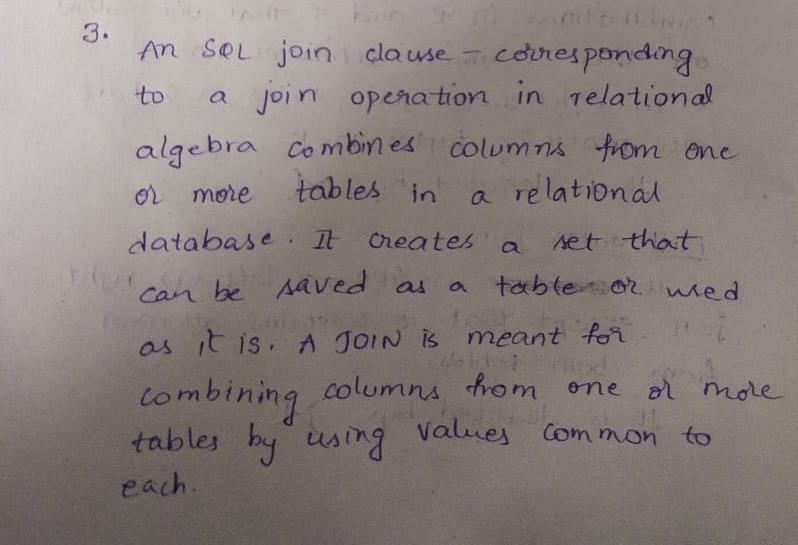 3.
An SQL join clause - corresponding
to a join operation in relational
algebra combines columns from one
or more tables in a relational
database. It creates a set that
can be saved as a table or used
as it is. A JOIN is meant for
combining columns from one or more
tables by using values common to
each.